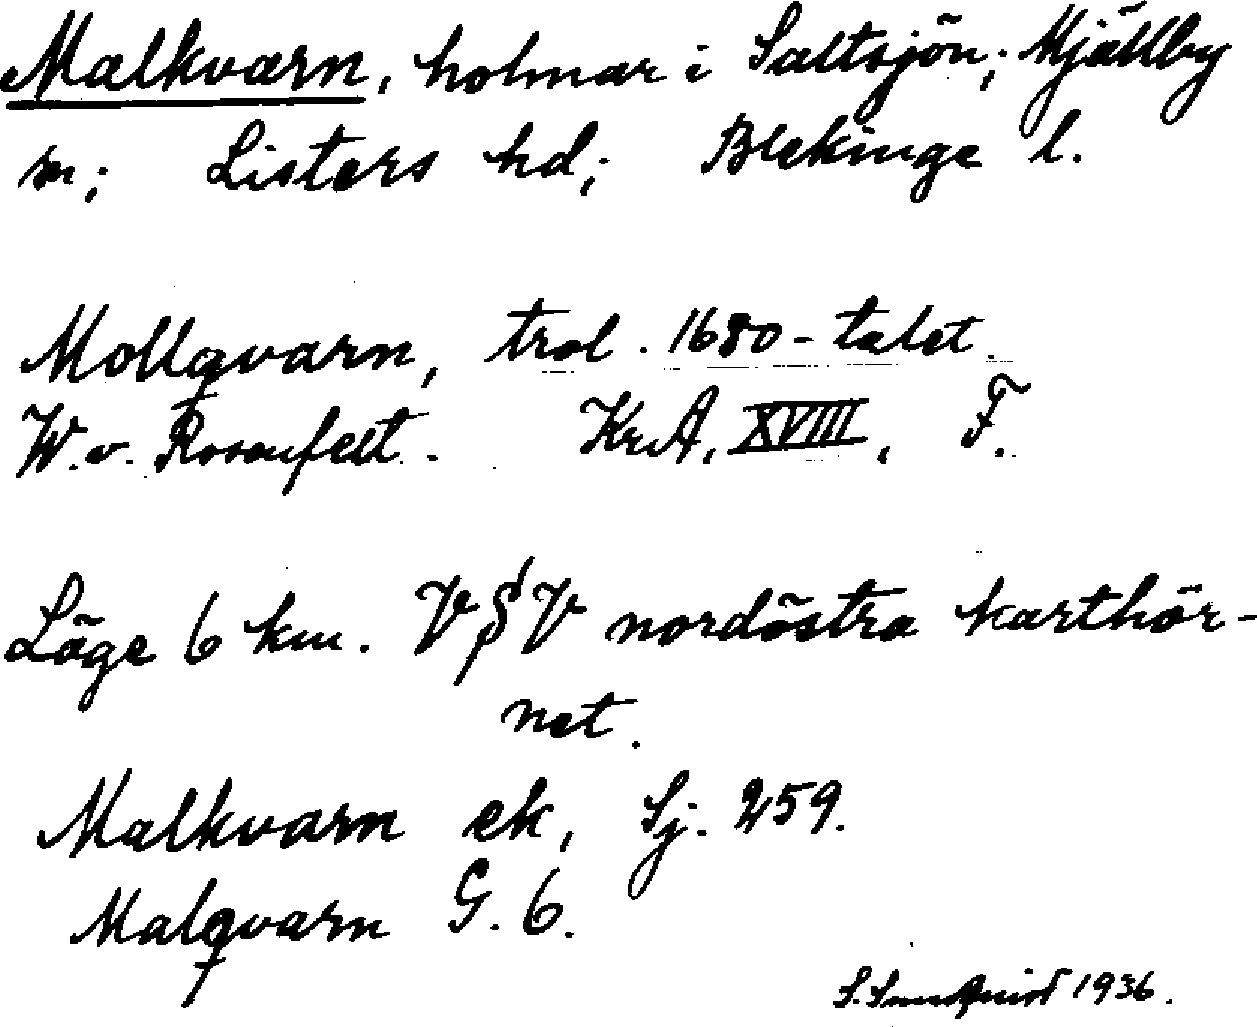 Malkvarn, holmar i Saltsjön; Mjällby
sn; Listers hd; Blekinge l.
Mollqvarn, trol. 1680-talet.
W. v. Rosenfelt. KrA, XVIII, F.
Läge 6 km. VSV nordöstra karthör-
net.
Malkvarn ek, Sj. 259.
Malqvarn G. 6.
S. Sundquist 1936.